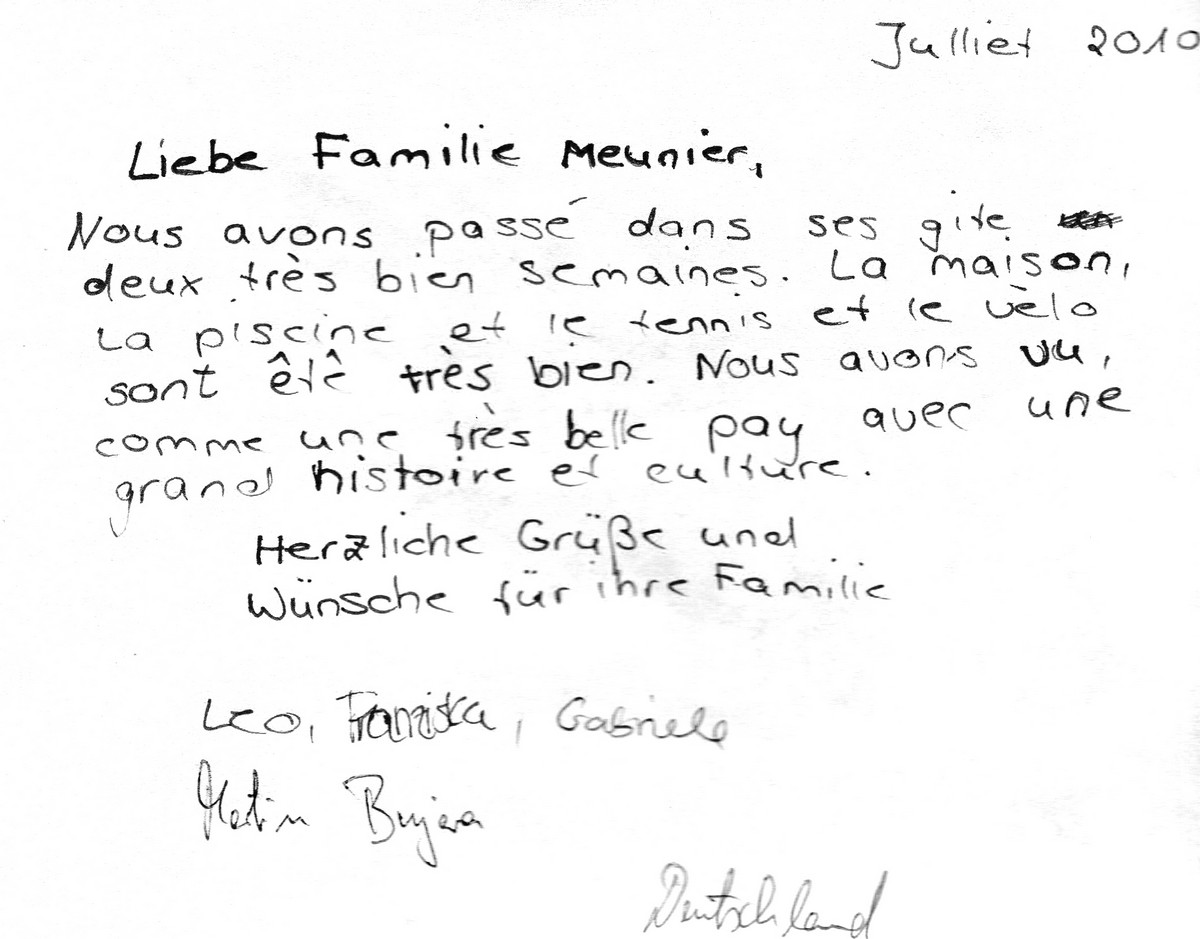 Julliet 2010
Liebe Familie Meunier,
Nous avons passé dans ses gite
deux très bien semaines. La maison,
La piscine et le tennis et le vèlo
sont êtê très bien. Nous avons vu,
comme une très belle pay avec une
grand histoire et culture.
Herzliche Grüße und
Wünsche für ihre Familie
Leo, Franziska, Gabriele
Martin
Deutschland